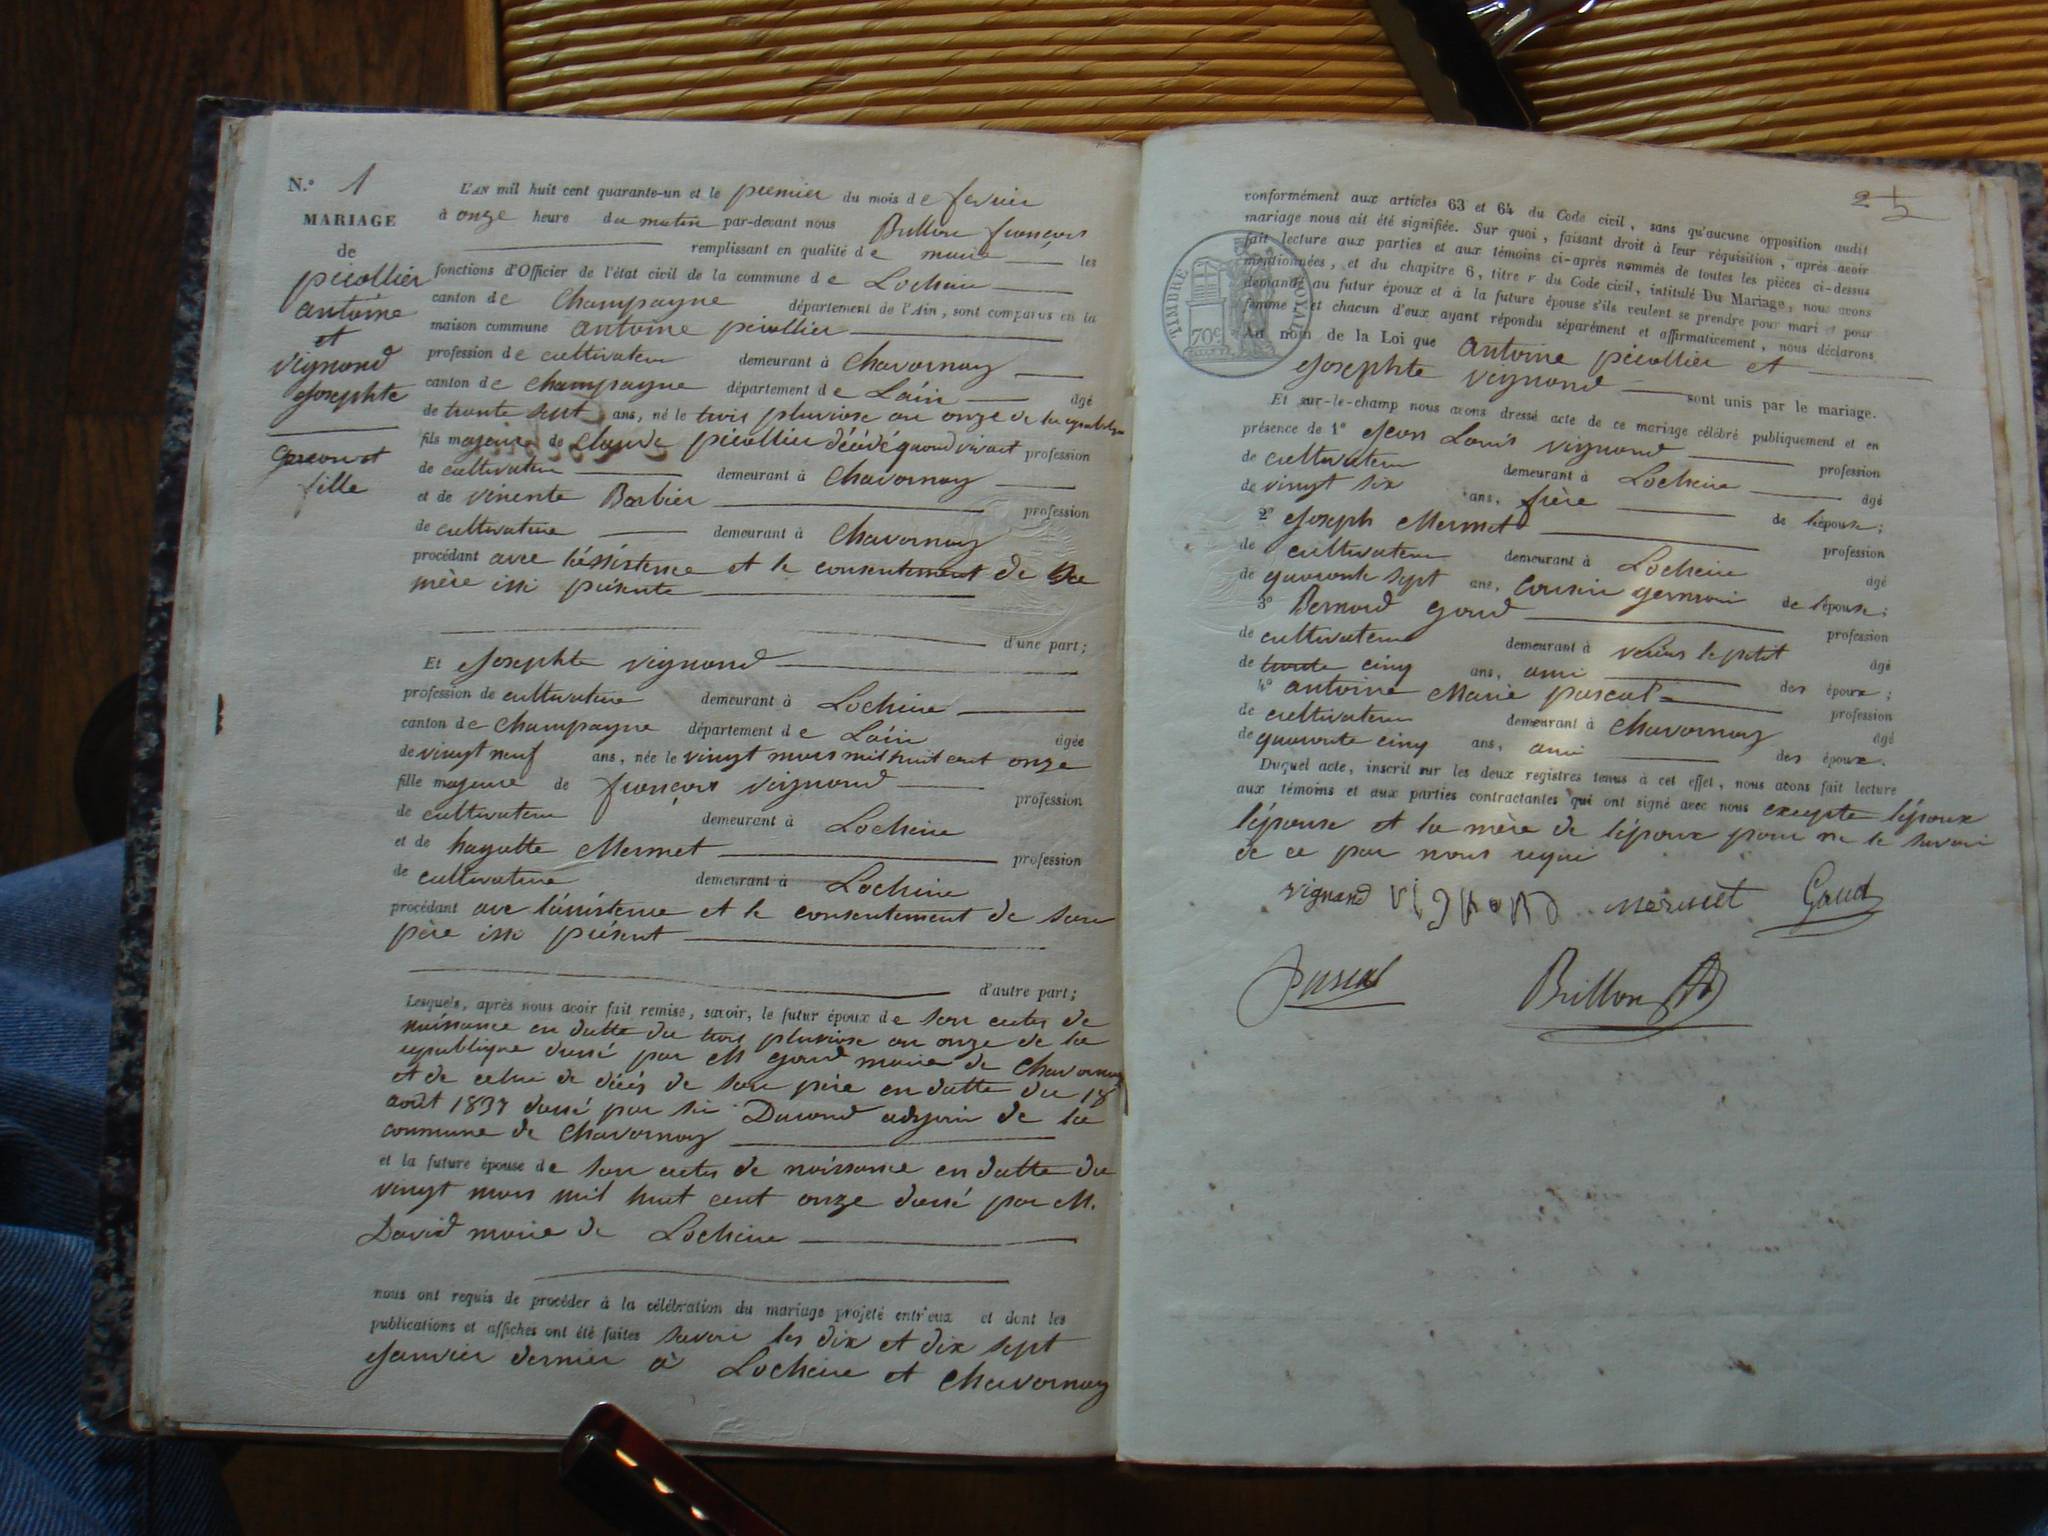 N.° 1
MARIAGE
de
picollier
antoine
et
vignand
Josephte
garcon et
fille
L'AN mil huit cent quarante-un et le premier du mois de fevrier
à onze heure du matin par-devant nous Brillon françois
remplissant en qualité de maire les
fonctions d'Officier de l'état civil de la commune de Lochieu
canton de Champagne département de l'Ain, sont comparus en la
maison commune antoine picollier
profession de cultivateur demeurant à Chavornay
canton de Champagne département de L'ain âgé
de trente sept ans, né le trois pluviose an onze de la republique
fils majeur de Claude picollier décédé quand vivait profession
de cultivateur demeurant à Chavornay
et de vincente Barbier profession
de cultivatrice demeurant à Chavornay
procédant avec l'éssistence et le consentement de sa
mère issi présente
d'une part;
Et Josephte vignand
profession de cultivatrice demeurant à Lochieu
canton de Champagne département de L'ain âgée
de vingt neuf ans, née le vingt mars mil huit cent onze
fille majeure de françois vignand profession
de cultivateur demeurant à Lochieu
et de hayette Mermet profession
de cultivatrice demeurant à Lochieu
procédant avec l'assistence et le consentement de son
père issi présent
d'autre part;
Lesquels, après nous avoir fait remise, savoir, le futur époux de son actes de
naissance en datte du trois pluviose an onze de la
republique dressé par M goud maire de Chavornay
et de celui de décés de son père en datte du 18
août 1837 dressé par sir Durand adjoin de la
commune de Chavornay
et la future épouse de son actes de naissance en datte du
vingt mars mil huit cent onze dressé par M.
David maire de Lochieu
nous ont requis de procéder à la célébration du mariage projeté entr'eux et dont les
publications et affiches ont été faites savoir les dix et dix sept
Janvier dernier à Lochieu et Chavornay
2
conformément aux articles 63 et 64 du Code civil, sans qu'aucune opposition audit
mariage nous ait été signifiée. Sur quoi, faisant droit à leur réquisition, après avoir
fait lecture aux parties et aux témoins ci-après nommés de toutes les pièces ci-dessus
mentionnées, et du chapitre 6, titre v du Code civil, intitulé Du Mariage, nous avons
demandé au futur époux et à la future épouse s'ils veulent se prendre pour mari et pour
femme; et chacun d'eux ayant répondu séparément et affirmativement, nous déclarons
TIMBRE ROYAL
70c
Au nom de la Loi que antoine picollier et
Josephte vignand sont unis par le mariage.
Et sur-le-champ nous avons dressé acte de ce mariage célébré publiquement et en
présence de 1° Jean Louis vignand profession
de cultivateur demeurant à Lochieu âgé
de vingt six ans, frère de l'épouse;
2° Joseph Mermet profession
de cultivateur demeurant à Lochieu âgé
de quarante sept ans, cousin germain de l'épouse;
3° Bernard goud profession
de cultivateur demeurant à virieu le petit âgé
de trente cinq ans, ami des époux;
4° antoine Marie pascal profession
de cultivateur demeurant à Chavornay âgé
de quarante cinq ans, ami des époux.
Duquel acte, inscrit sur les deux registres tenus à cet effet, nous avons fait lecture
aux témoins et aux parties contractantes qui ont signé avec nous excepte l'époux
l'épouse et la mère de l'époux pour ne le savoir
de ce par nous requi
vignand vignand mermet Goud
Pascal Brillon